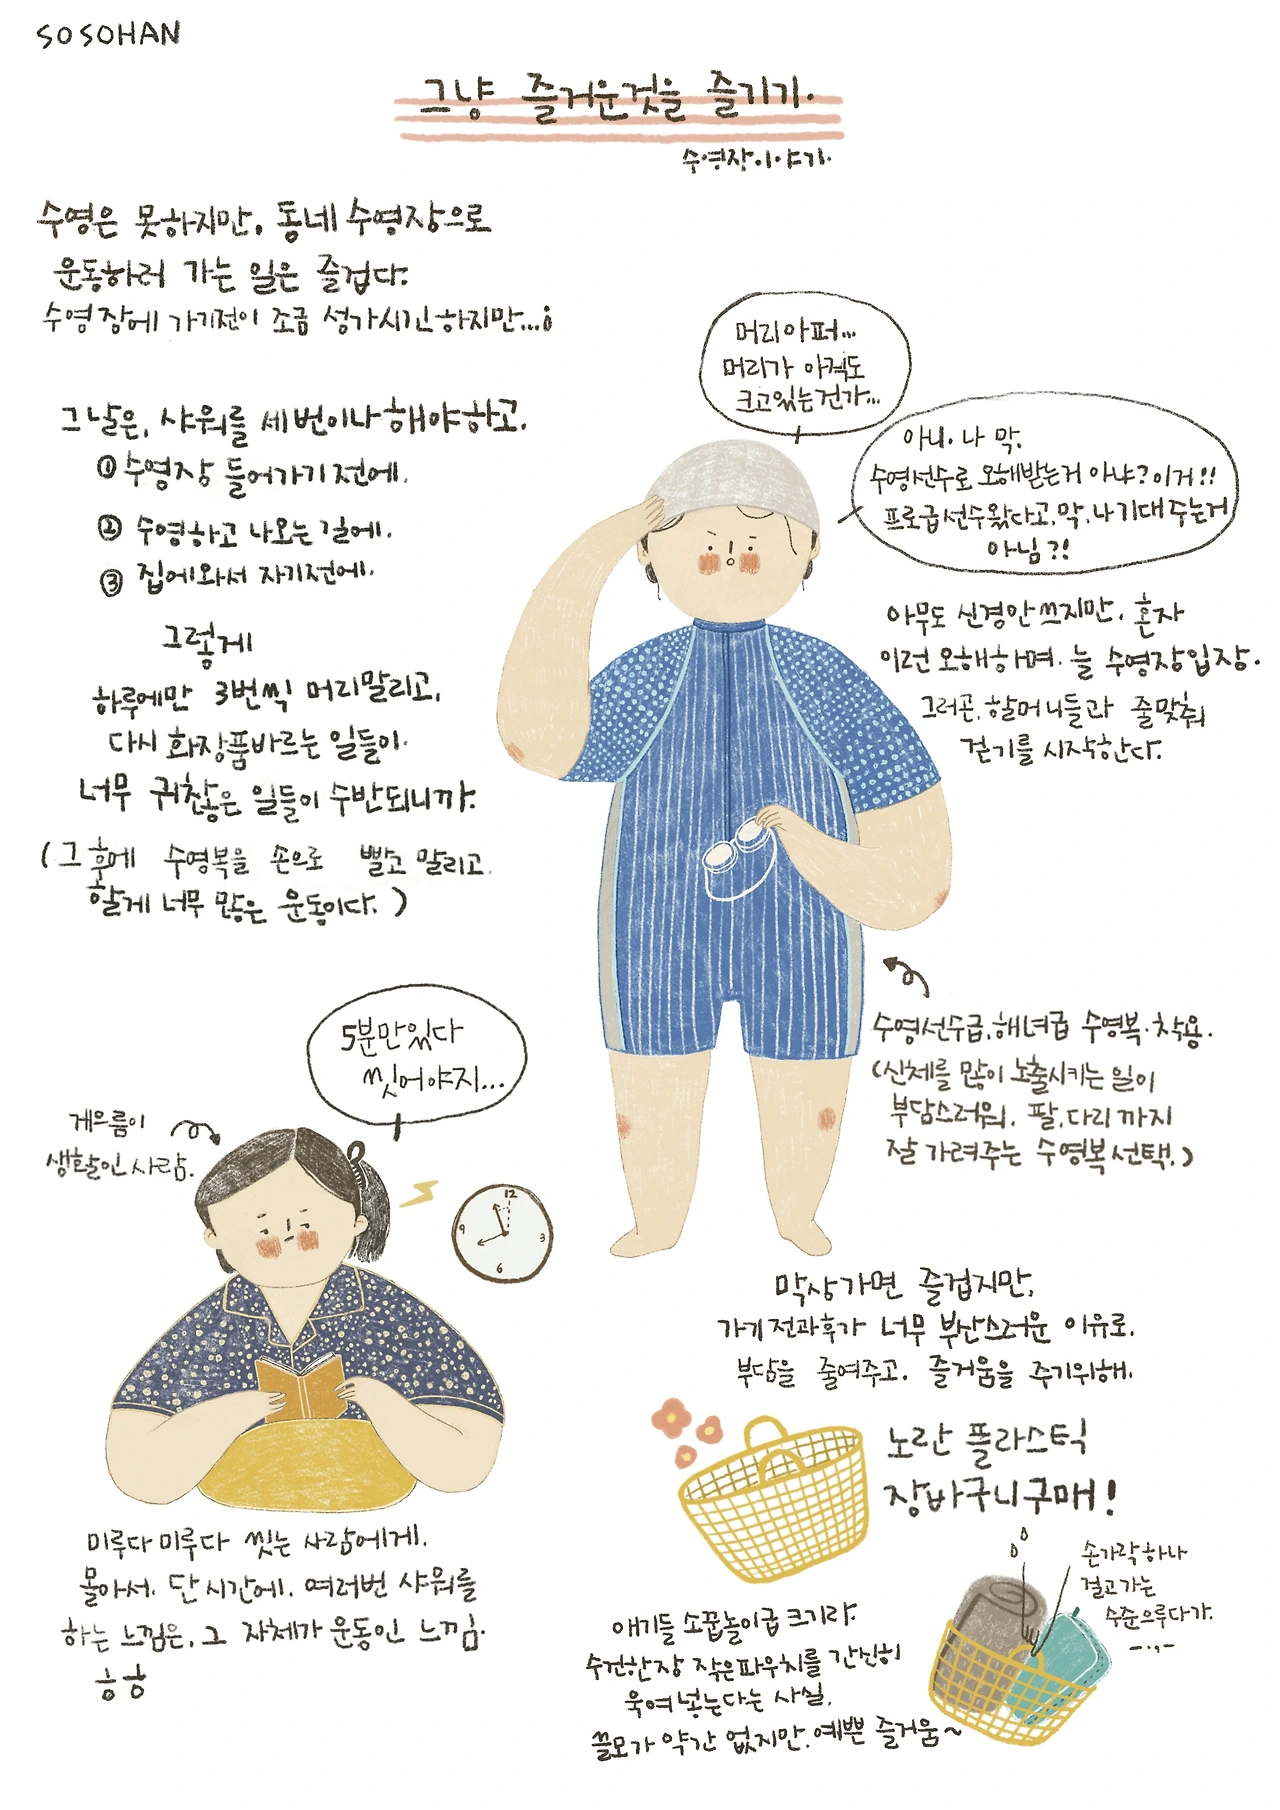 SOSOHAN
그냥 즐거운것을 즐기기.
수영장이야기.
수영은 못하지만. 동네 수영장으로
운동하러 가는 일은 즐겁다.
수영장에 가기전이 조금 성가시긴하지만...;
그날은, 샤워를 세번이나 해야하고.
① 수영장 들어가기 전에.
② 수영하고 나오는 길에.
③ 집에와서 자기전에.
그렇게
하루에만 3번씩 머리말리고,
다시 화장품바르는 일들이.
너무 귀찮은 일들이 수반되니까.
(그 후에 수영복을 손으로 빨고 말리고.
할게 너무 많은 운동이다.)
머리아퍼...
머리가 아직도
크고있는건가...
아니. 나 막.
수영선수로 오해받는거 아냐? 이거!!
프로급선수왔다고, 막, 나 기대주는거
아님?!
아무도 신경안쓰지만. 혼자
이런 오해하며. 늘 수영장입장.
그러곤, 할머니들과 줄맞춰
걷기를 시작한다.
수영선수급, 해녀급 수영복.착용.
(신체를 많이 노출시키는 일이
부담스러워. 팔, 다리까지
잘 가려주는 수영복선택.)
5분만있다
씻어야지...
게으름이
생활인 사람.
12
3
6
9
미루다미루다 씻는 사람에게.
몰아서. 단시간에. 여러번 샤워를
하는 느낌은, 그 자체가 운동인 느낌.
ㅎㅎ
막상가면 즐겁지만,
가기전과후가 너무 부산스러운 이유로.
부담을 줄여주고. 즐거움을 주기위해.
노란 플라스틱
장바구니구매!
손가락하나
걸고가는
수준으루다가.
애기들 소꿉놀이급 크기라.
수건한장 작은파우치를 간신히
욱여넣는다는 사실.
쓸모가 약간 없지만, 예쁜 즐거움~